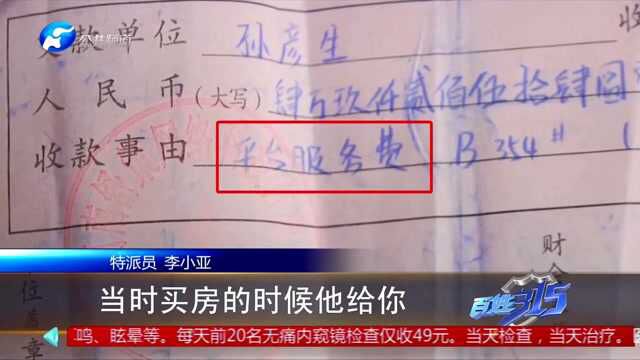 交款单位 孙彦生
人民币(大写)肆万玖仟贰佰伍拾肆圆
收
收款事由 平台服务费 B354#
财
位盖章
特派员 李小亚
当时买房的时候他给你
百姓315
鸣、眩晕等。每天前20名无痛内窥镜检查仅收49元。当天检查,当天治疗。